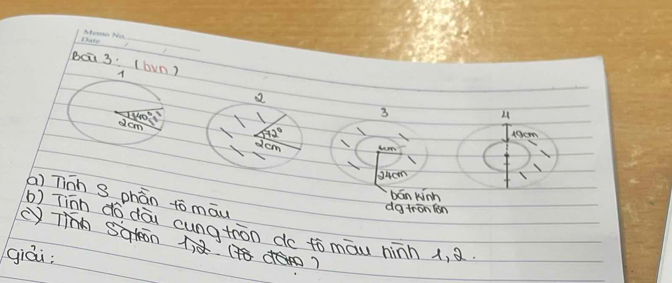 Memo No.
Date
Bài 3: (bvn)
1
2
3
4
2cm
72°
2cm
24cm
bán kính
đg tròn lớn
a) Tính S phần tô màu
b) Tính độ dài cung tròn đc tô màu hình 1,2.
c) Tính 1,2.
giải: